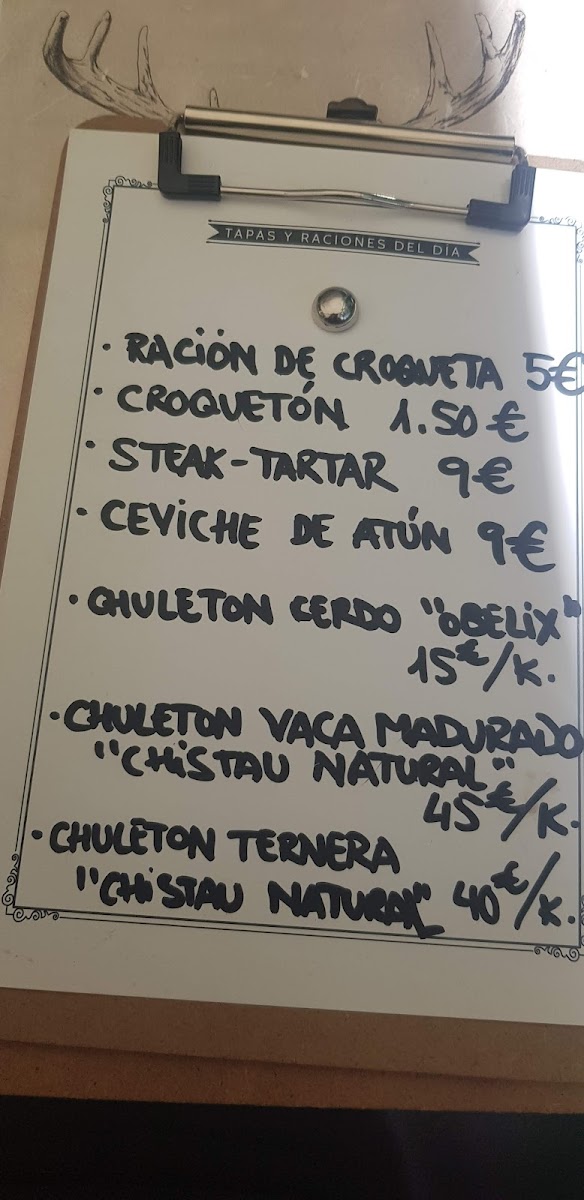 TAPAS Y RACIONES DEL DÍA
· RACIÓN DE CROQUETA 5€
· CROQUETÓN 1.50€
· STEAK-TARTAR 9€
· CEVICHE DE ATÚN 9€
· CHULETON CERDO "OBELIX"
15€/K.
· CHULETON VACA MADURADO
"CHiSTAU NATURAL"
45€/K.
· CHULETON TERNERA
"CHiSTAU NATURAL" 40€/K.